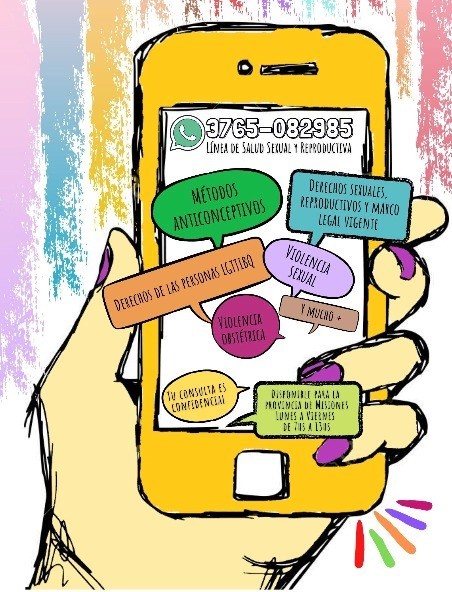 3765-082985
Línea de Salud Sexual y Reproductiva
Métodos
anticonceptivos
Derechos sexuales,
reproductivos y marco
legal vigente
Derechos de las personas LGTTIBQ
Violencia
sexual
Violencia
obstétrica
Y mucho +
Tu consulta es
confidencial
Disponible para la
provincia de Misiones
Lunes a Viernes
de 7hs a 13hs